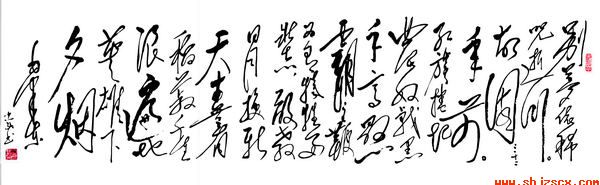 别梦依稀
咒逝川
故園三十二
年前
红旗卷起
农奴戟黑
手高悬
霸主鞭
为有牺牲多
壮志敢教
日月换新
天喜看
稻菽千重
浪遍地
英雄下
夕烟
毛泽东
www.shizscx.com